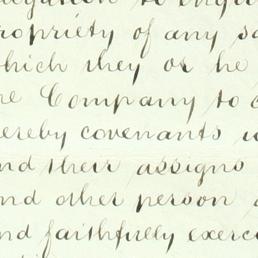 to
ropriety of any
which they or he
he Company to
hereby covenants
and their assigns
and other person
and faithfully